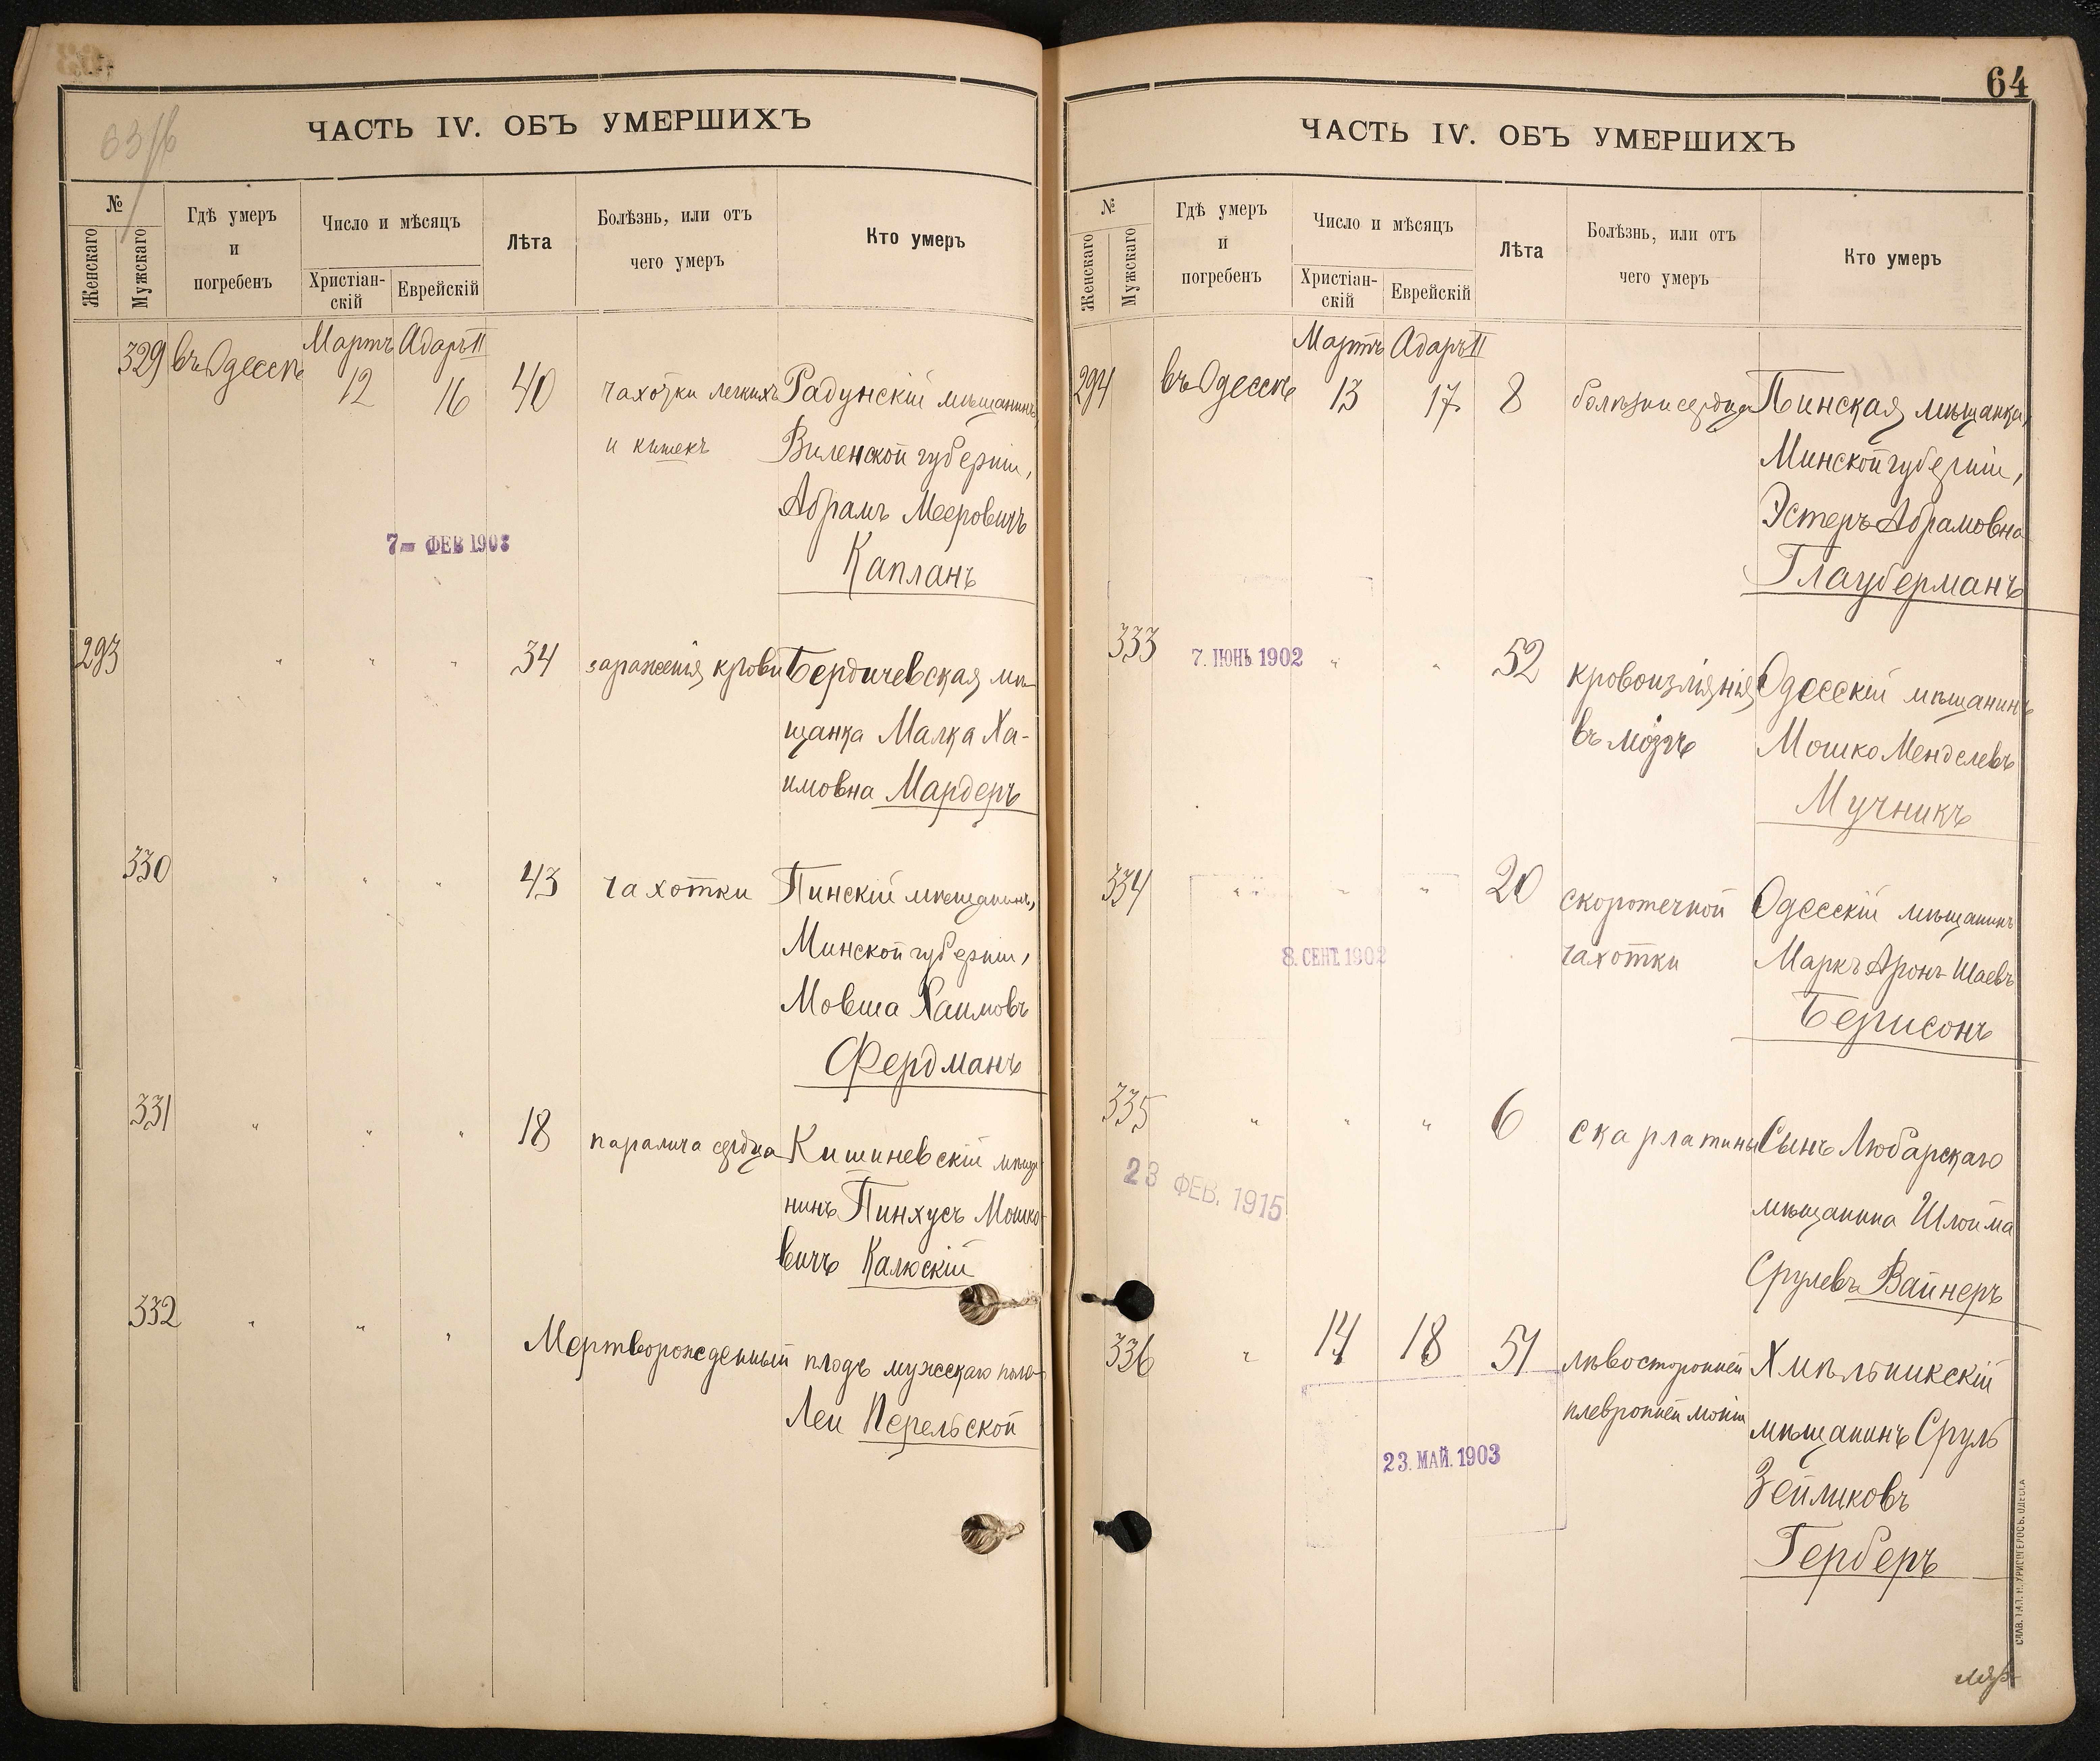 63
63/б
ЧАСТЬ IV. ОБЪ УМЕРШИХЪ
№
Женскаго
Мужскаго
Гдѣ умеръ
и
погребенъ
Число и мѣсяцъ
Христіан-
скій
Еврейскій
Лѣта
Болѣзнь, или отъ
чего умеръ
Кто умеръ
Мартъ Адаръ II
329 въ Одессѣ 12 16 40 чахотки легкихъ Радунскій мѣщанинъ,
и кишекъ Виленской губерніи,
Абрамъ Мееровичъ
Капланъ
7- ФЕВ 1903
293 " " " 34 зараженія крови Бердичевская мѣ-
щанка Малка Ха-
имовна Мардеръ
330 " " " 43 чахотки Пинскій мѣщанинъ,
Минской губерніи,
Мовша Хаимовъ
Фердманъ
331 " " " 18 паралича сердца Кишиневскій мѣща-
нинъ Пинхусъ Мошко-
вичъ Калюскій
332 " " " Мертворожденный плодъ мужескаго пола
Леи Перельской
64
ЧАСТЬ IV. ОБЪ УМЕРШИХЪ
№
Женскаго
Мужскаго
Гдѣ умеръ
и
погребенъ
Число и мѣсяцъ
Христіан-
скій
Еврейскій
Лѣта
Болѣзнь, или отъ
чего умеръ
Кто умеръ
Мартъ Адаръ II
294 въ Одессѣ 13 17 8 болѣзни сердца Пинская мѣщанка,
Минской губерніи,
Эстеръ Абрамовна
Глауберманъ
333 7. ІЮНЬ 1902 " " 52 кровоизліянія Одесскій мѣщанинъ
въ мозгъ Мошко Менделевъ
Мучникъ
334 " " " 20 скоротечной Одесскій мѣщанинъ
чахотки Маркъ Аронъ Шаевъ
Берисонъ
8. СЕНТ. 1902
335 " " " 6 скарлатины Сынъ Любарскаго
мѣщанина Шлоима
Срулевъ Вайнеръ
23 ФЕВ. 1915
336 " 14 18 51 лѣвосторонней Хмѣльникскій
плевропнеймоніи мѣщанинъ Сруль
Зейликовъ
Герберъ
23. МАЙ. 1903
СЛАВ. ТИП. Н. ХРИСОГЕЛОСЪ. ОДЕССА